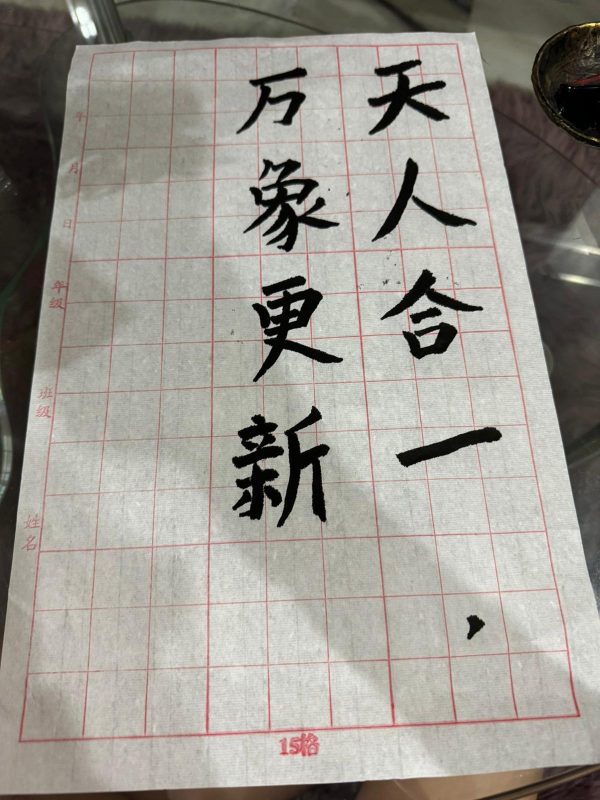 天人合一，
万象更新
年 月 日
年级
班级
姓名
15格